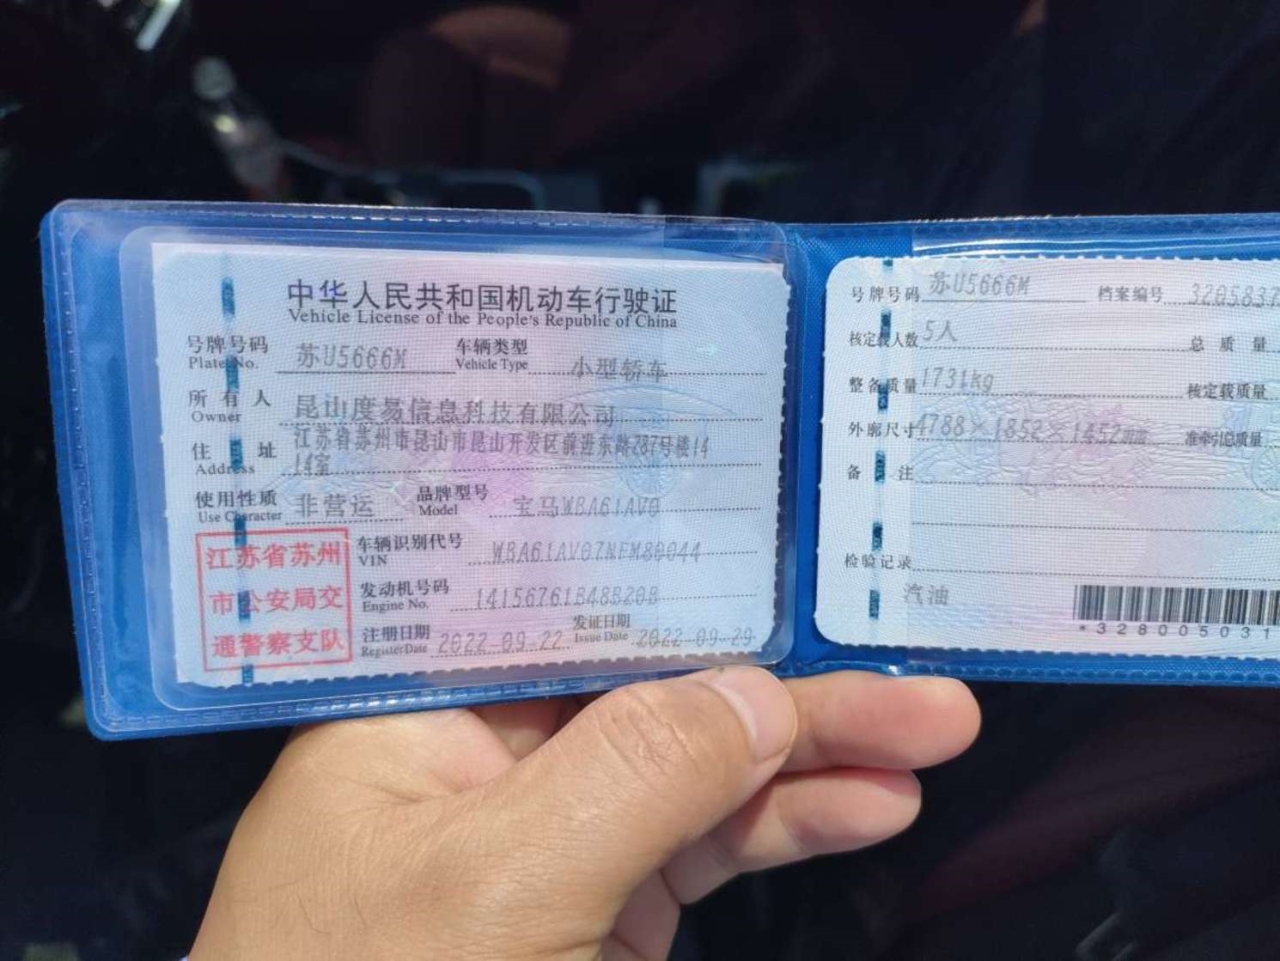 中华人民共和国机动车行驶证
Vehicle License of the People's Republic of China
号牌号码 苏U5666M 车辆类型 小型轿车
Plate No. Vehicle Type
所有人 昆山度易信息科技有限公司
Owner
住址 江苏省苏州市昆山市昆山开发区前进东路287号楼14
Address 14室
使用性质 非营运 品牌型号 宝马WBA61AV0
Use Character Model
江苏省苏州
市公安局交
通警察支队
车辆识别代号 WBA61AV07NFM80044
VIN
发动机号码 14156761B48B20B
Engine No.
注册日期 2022-09-22 发证日期 2022-09-29
Register Date Issue Date
号牌号码 苏U5666M 档案编号 3205837
核定载人数 5人 总质量
整备质量 1731kg 核定载质量
外廓尺寸 4788×1852×1452mm 准牵引总质量
备注
检验记录
汽油
*328005031